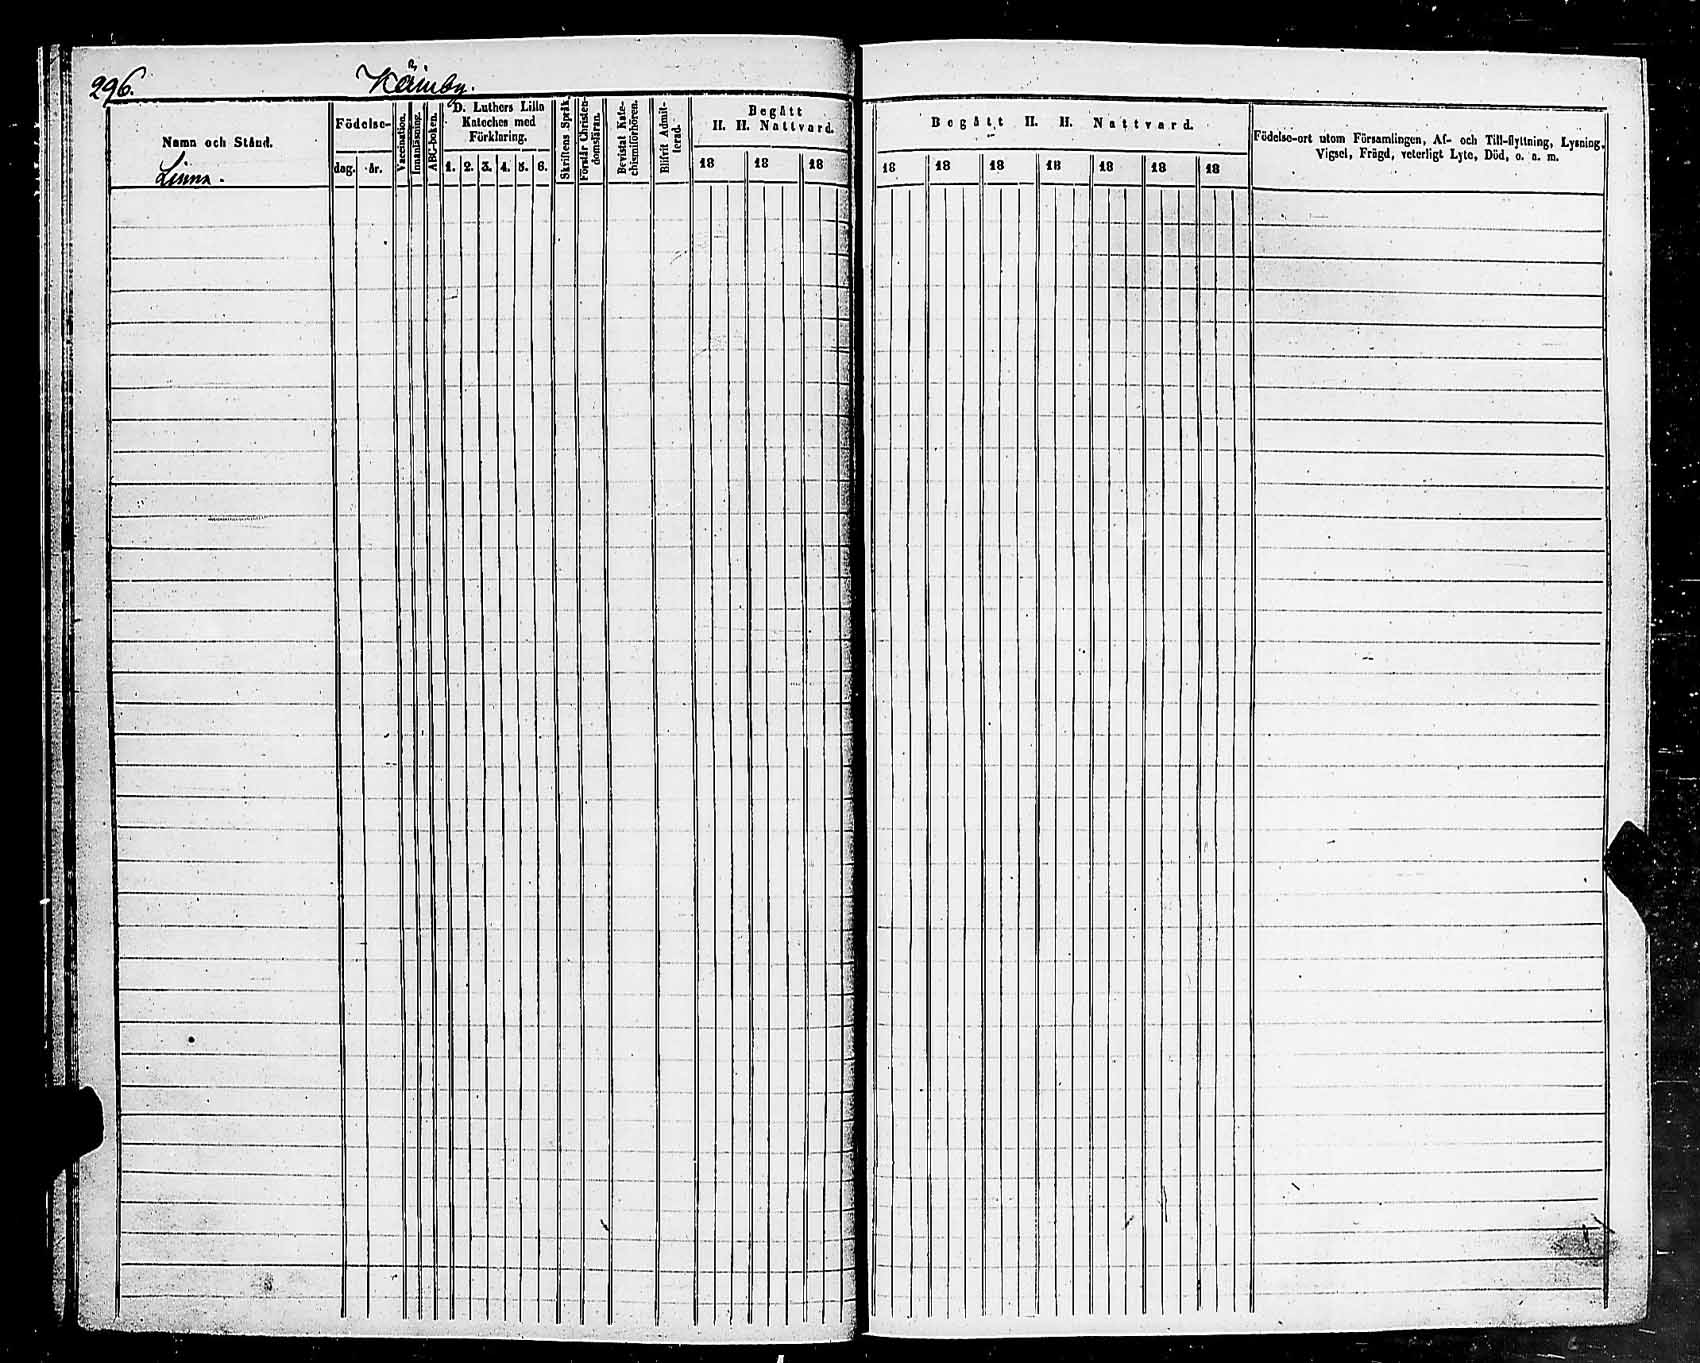 296.
Namn och Stånd.
Linna.
Födelse-
dag. år.
Vaccination.
Innanläsning.
ABC-boken.
D. Luthers Lilla
Kateches med
Förklaring.
1. 2. 3. 4. 5. 6.
Skriftens Språk.
Förstår Christen-
domsläran.
Bevistat Kate-
chismiförhören.
Bilfrit Admit-
terad.
Begått
H. H. Nattvard.
18 18 18
Begått H. H. Nattvard.
18 18 18 18 18 18 18
Födelse-ort utom Församlingen, Af- och Till-flyttning, Lysning,
Vigsel, Frägd, veterligt Lyte, Död, o. a. m.